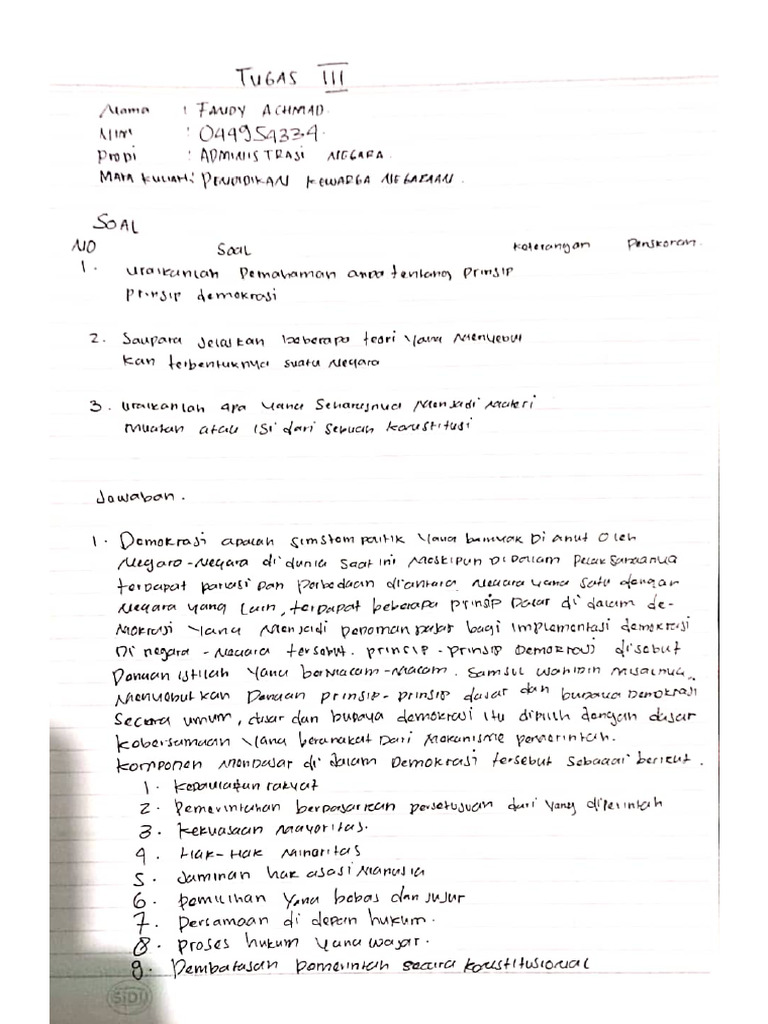 TUGAS III
Nama : FANDY ACHMAD.
NIM : 044954334.
Prodi : ADMINISTRASI NEGARA.
MATA KULIAH : PENDIDIKAN KEWARGA NEGARAAN.
SOAL
NO Soal Keterangan Penskoran.
1. Uraikanlah Pemahaman anda tentang Prinsip
Prinsip demokrasi
2. Saudara Jelaskan beberapa teori yang Menyebut
kan terbentuknya suatu Negara
3. Uraikanlah apa yang Seharusnya Menjadi Materi
Muatan atau isi dari sebuah konstitusi
Jawaban.
1. Demokrasi adalah simstem politik yang banyak Di anut Oleh
Negara-Negara di dunia saat ini Meskipun Di Dalam Pelaksanaanya
terdapat pariasi Dan Perbedaan diantara Negara yang satu dengan
Negara yang lain, terdapat beberapa prinsip Dasar di dalam de-
Mokrasi yang Menjadi pedoman dasar bagi implementasi demokrasi
Di negara - Negara tersebut. princip - prinsip Demokrasi disebut
Dengan istilah yang bermacam-Macam. Samsul Wahidin Misalnya
Menyebutkan Dengan prinsip-prinsip dasar dan budaya Demokrasi
Secara umum, dasar dan budaya demokrasi itu dipilih dengan dasar
kebersamaan yang berangkat Dari Mekanisme pemerintah.
Komponen Mendasar di dalam Demokrasi tersebut Sebagai berikut.
1. Kedaulatan rakyat
2. Pemerintahan berdasarkan persetujuan dari yang diperintah
3. Kekuasaan Mayoritas.
4. Hak-Hak Minoritas
5. Jaminan hak asasi Manusia
6. Pemilihan yang bebas dan jujur
7. Persamaan di depan hukum.
8. Proses hukum yang wajar.
9. Pembatasan pemerintah secara konstitusional
SIDU